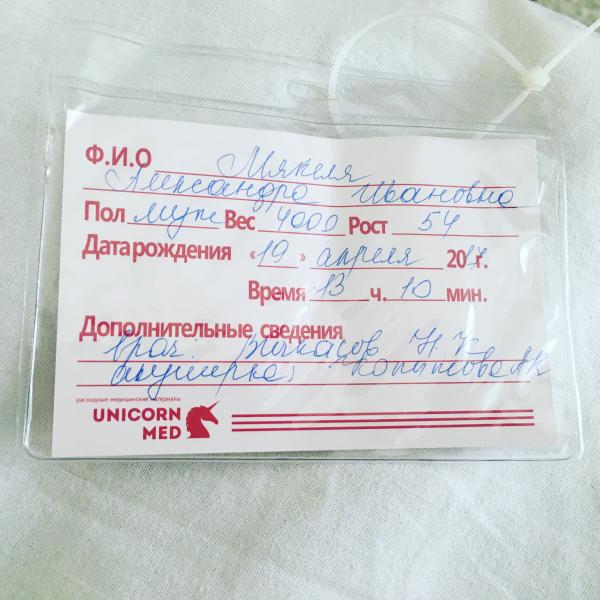 Ф.И.О Мякеля
Александра Ивановна
Пол муж Вес 4000 Рост 54
Дата рождения «19» апреля 2017г.
Время 13 ч. 10 мин.
Дополнительные сведения
врач Н К
акушерка
расходные медицинские материалы
UNICORN
MED